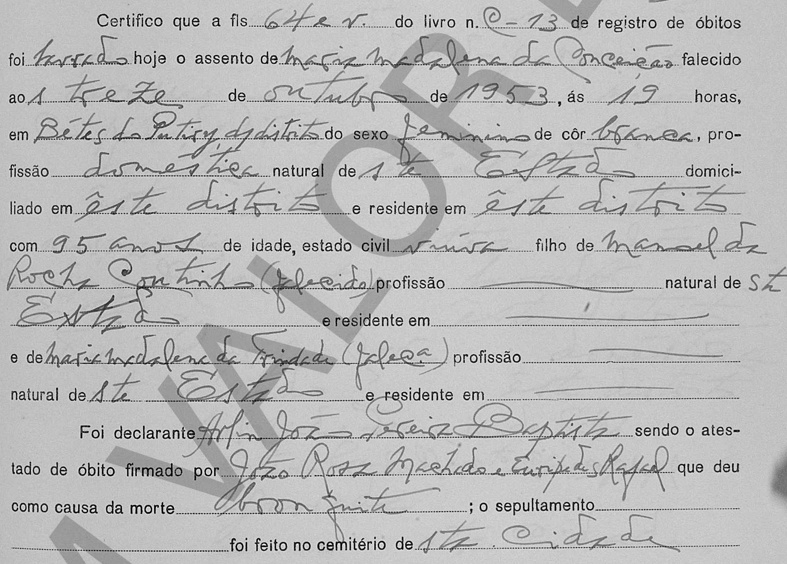 Certifico que a fls. 64 e v. do livro n. C-13 de registro de óbitos
foi lavrado hoje o assento de Maria Madalena da Conceição falecido
aos treze de outubro de 1953, ás 19 horas,
em do distrito do sexo feminino de côr branca, pro-
fissão doméstica natural deste Estado domici-
liado em êste distrito e residente em êste distrito
com 95 anos de idade, estado civil viúva filho de Manoel da
Rocha Coutinho (falecido) profissão natural de ste
Estado e residente em
e de Maria Madalena da Trindade (faleca) profissão
natural de ste Estado e residente em
Foi declarante João Pereira Baptista sendo o ates-
tado de óbito firmado por João Rosa Machado e Euripedes Rafael que deu
como causa da morte ; o sepultamento
foi feito no cemitério de sta Cidade
VALOR